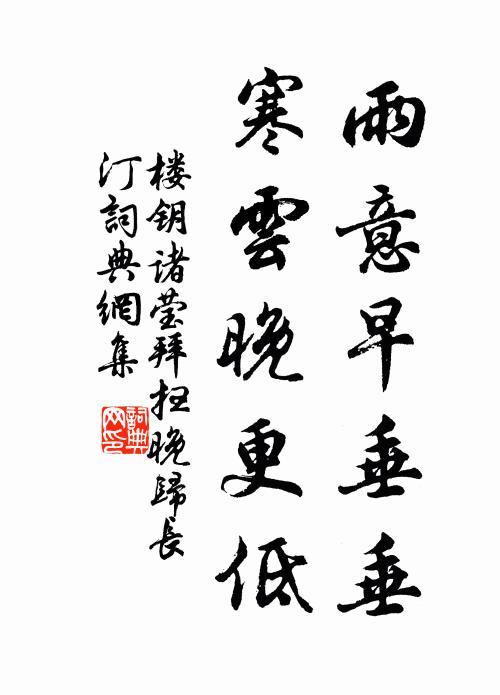 雨意早垂垂
寒雲晚更低
楼钥诸莹拜扫晚歸長
汀詞典網集
詞典网印